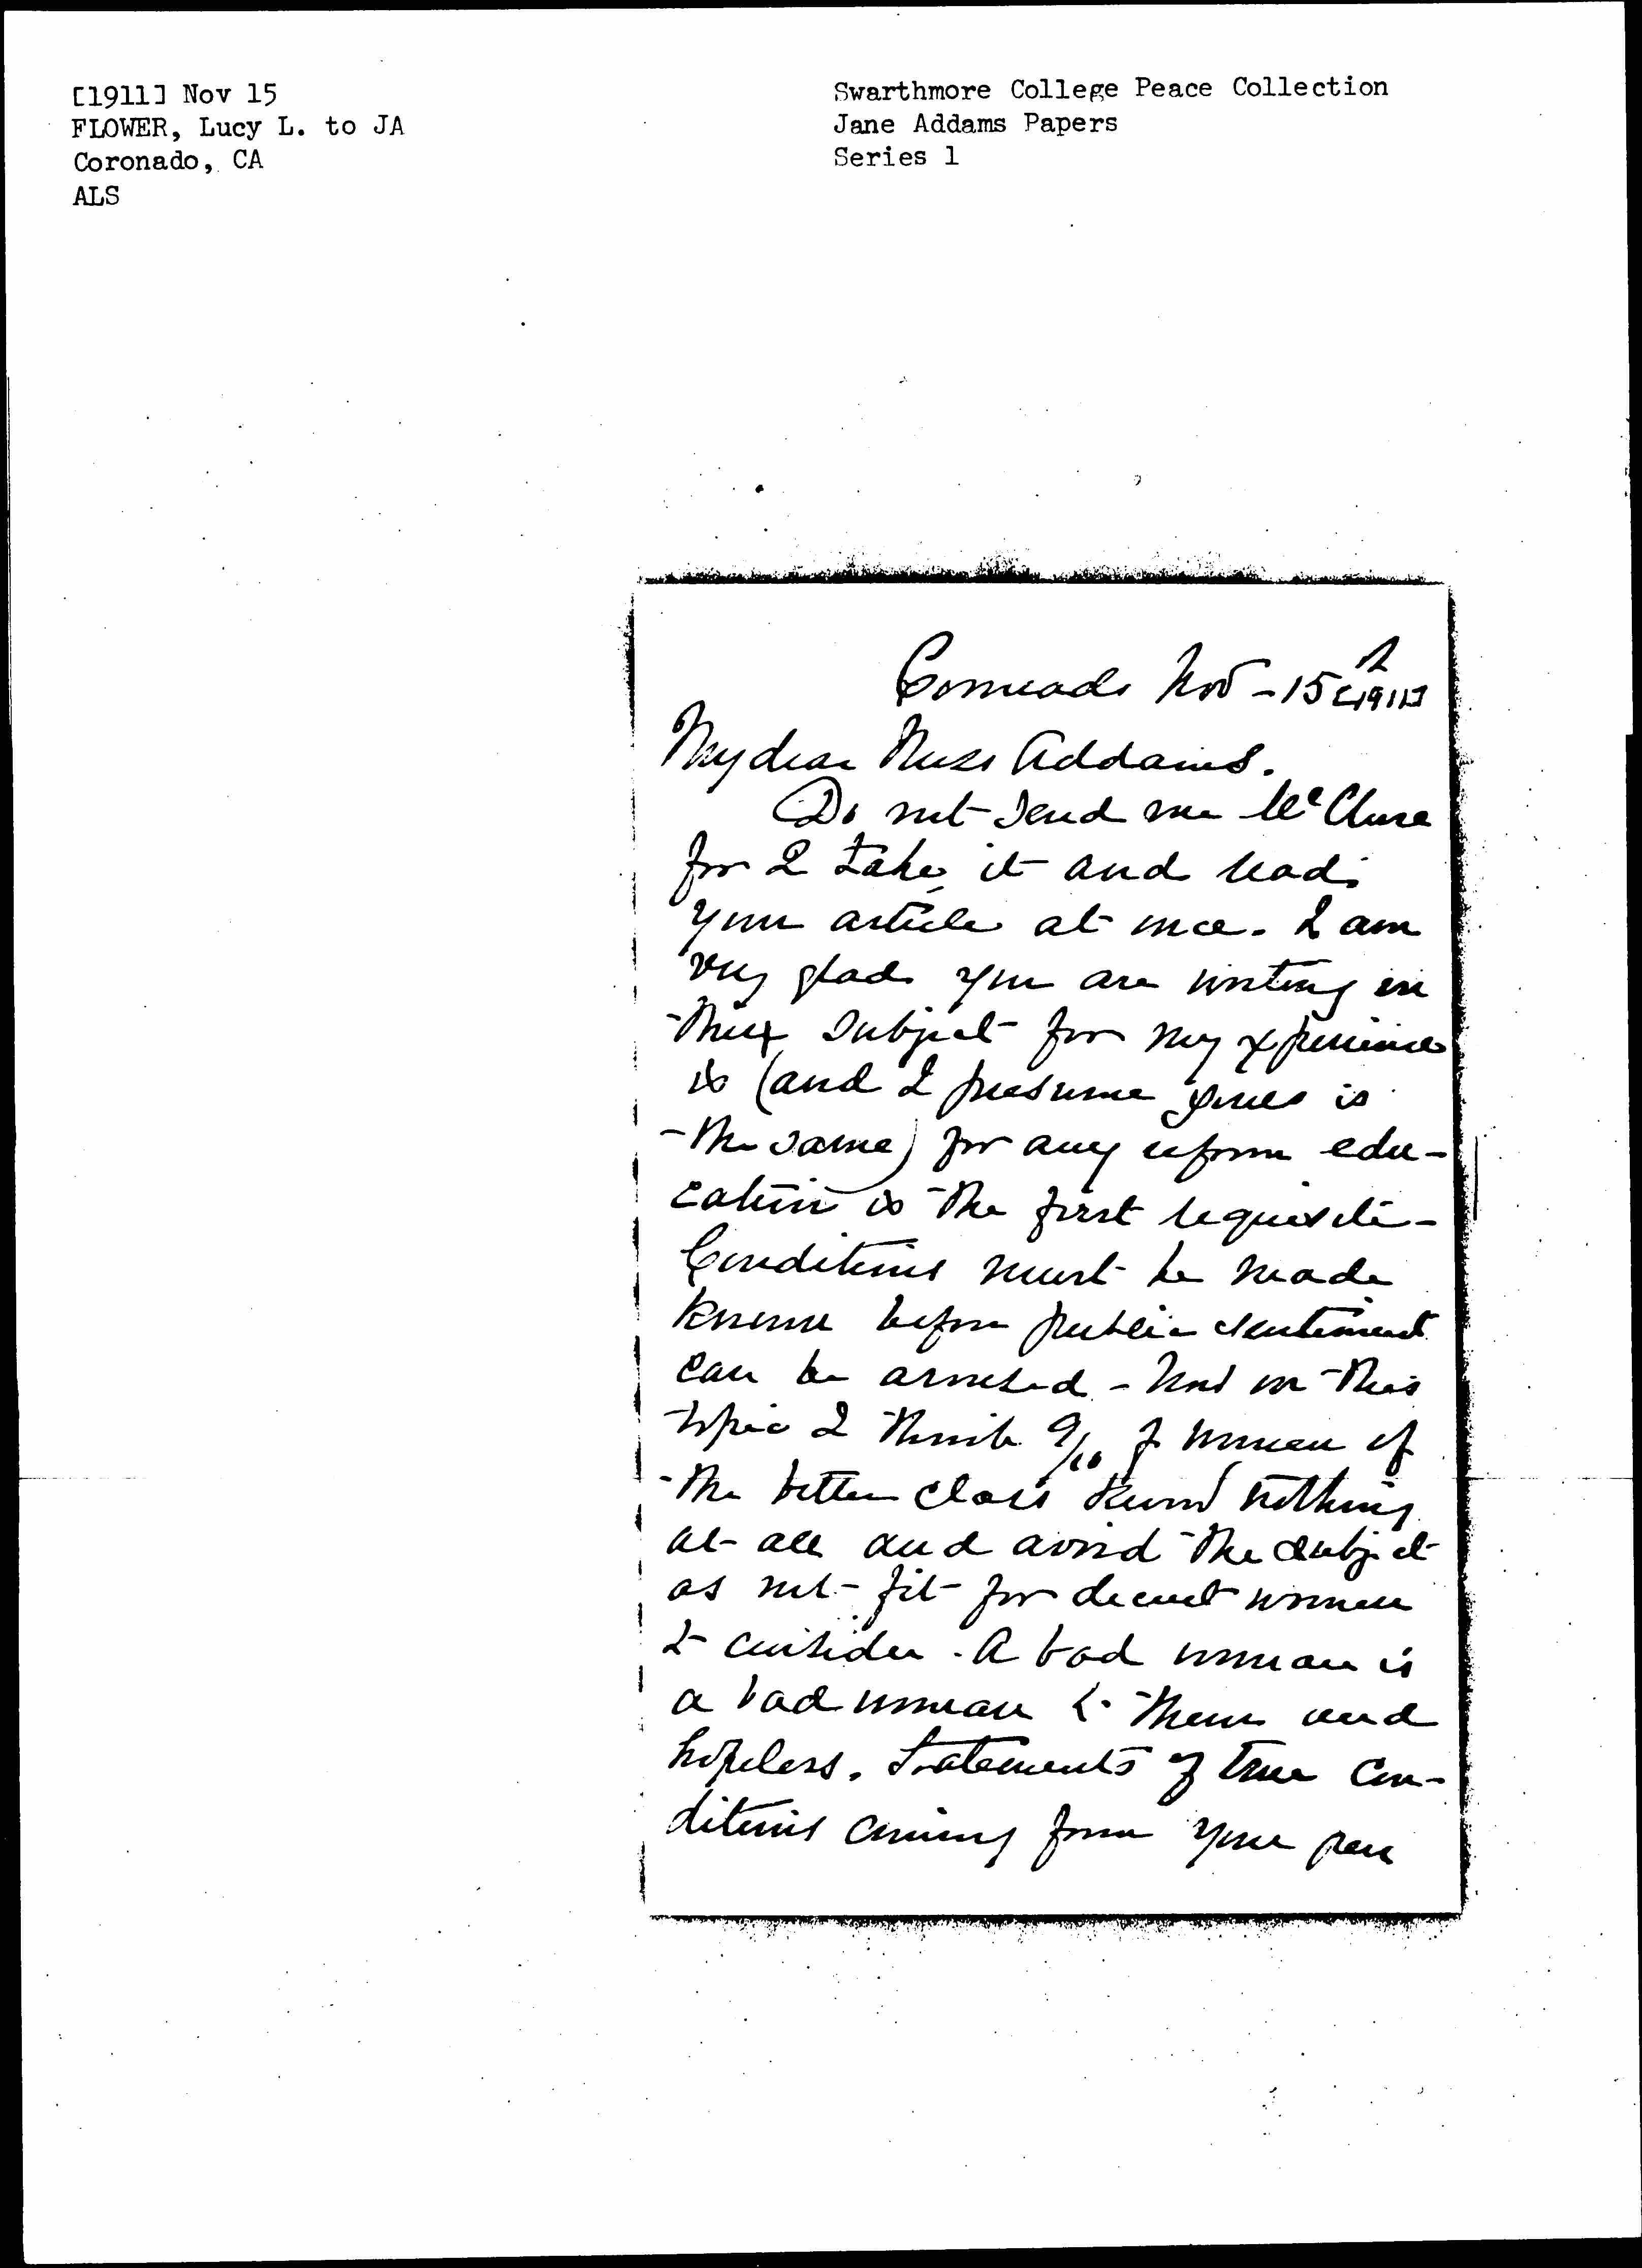 [1911] Nov 15
FLOWER, Lucy L. to JA
Coronado, CA
ALS
Swarthmore College Peace Collection
Jane Addams Papers
Series 1
Coronado Nov - 15 [1911]
My dear Miss Addams.
Do not send me McClure
for I take it and read
your article at once. I am
very glad you are writing on
this subject for my experience
is (and I presume yours is
the same) for any reform edu-
cation is the first requisite -
Conditions must be made
known before public sentiment
can be aroused - Now on this
topic I think 9/10 of women of
the better class know nothing
at all and avoid the subject
as not fit for decent women
to consider. A bad woman is
a bad woman to them and
hopeless. Statements of true con-
ditions coming from your pen